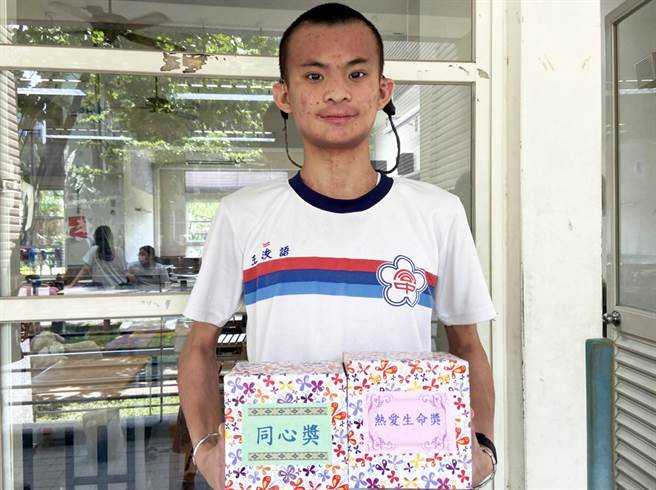 王浚語
中
同心獎
熱愛生命獎